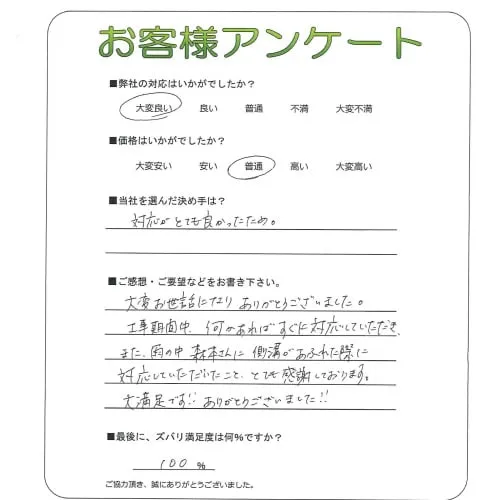 お客様アンケート
■弊社の対応はいかがでしたか？
大変良い 良い 普通 不満 大変不満
■価格はいかがでしたか？
大変安い 安い 普通 高い 大変高い
■当社を選んだ決め手は？
対応がとても良かったため。
■ご感想・ご要望などをお書き下さい。
大変お世話になり ありがとうございました。
工事期間中、何かあればすぐに対応していただき、
また、雨の中 森本さんに 側溝があふれた際に
対応していただいたこと、とても感謝しております。
大満足です!! ありがとうございました!!
■最後に、ズバリ満足度は何%ですか？
100 %
ご協力頂き、誠にありがとうございました。